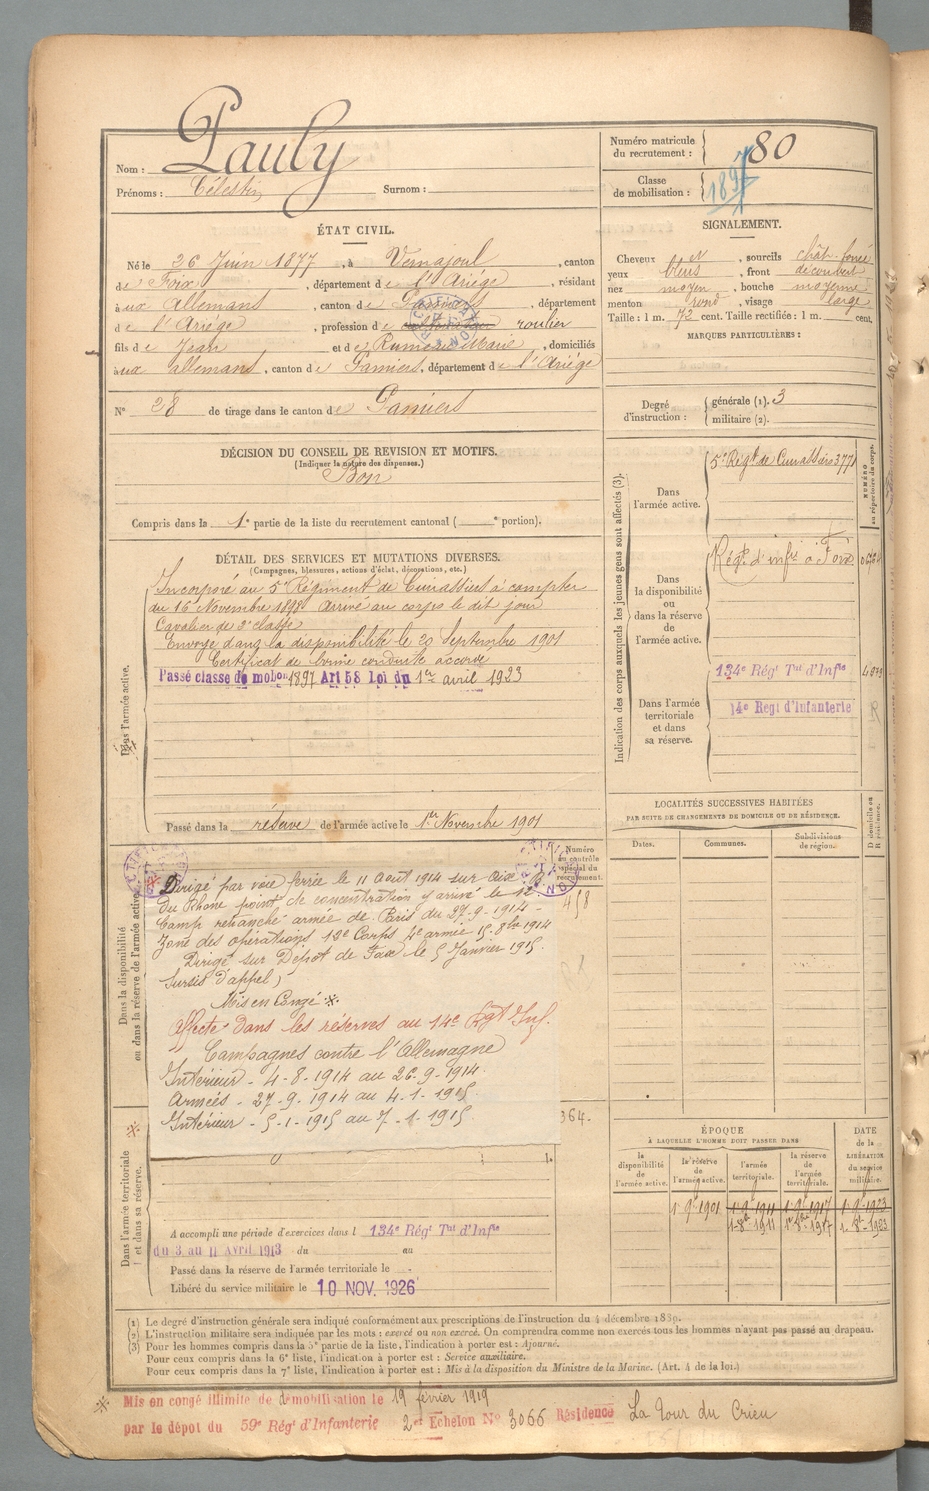 Nom : Pauly
Prénoms : Célestin Surnom :
Numéro matricule du recrutement : 780
Classe de mobilisation : 1897
ÉTAT CIVIL.
Né le 26 Juin 1877, à Vernajoul, canton
de Foix, département de l'Ariége, résidant
à aux Allemans, canton de Pamiers, département
de l'Ariége, profession de cultivateur roulier
fils de Jean et de Rumeau Marie, domiciliés
à aux allemans, canton de Pamiers, département de l'Ariége
N° 28 de tirage dans le canton de Pamiers
SIGNALEMENT.
Cheveux et, sourcils chât. foncé
yeux bleus, front découvert
nez moyen, bouche moyenne
menton rond, visage large
Taille : 1 m. 72 cent. Taille rectifiée : 1 m. cent.
MARQUES PARTICULIÈRES :
Degré d'instruction : générale (1). 3
militaire (2).
DÉCISION DU CONSEIL DE REVISION ET MOTIFS.
(Indiquer la nature des dispenses.)
Bon
Compris dans la 1e partie de la liste du recrutement cantonal ( e portion).
DÉTAIL DES SERVICES ET MUTATIONS DIVERSES.
(Campagnes, blessures, actions d'éclat, décorations, etc.)
Dans l'armée active.
Incorporé au 5e Régiment de Cuirassiers à compter
du 16 Novembre 1898 Arrivé au corps le dit jour
Cavalier de 2e classe
Envoyé dans la disponibilité le 20 Septembre 1901
Certificat de bonne conduite accordé
Passé classe de mobon 1897 Art 58 Loi du 1er avril 1923
Passé dans la réserve de l'armée active le 1er Novembre 1901
Indication des corps auxquels les jeunes gens sont affectés (3).
NUMÉRO au répertoire du corps.
Dans l'armée active.
5e Régt de Cuirassiers 3771
Dans la disponibilité ou dans la réserve de l'armée active.
Régt d'infie à Foix
Dans l'armée territoriale et dans sa réserve.
134e Régt Tal d'Infie
14e Regt d'Infanterie
R
LOCALITÉS SUCCESSIVES HABITÉES
PAR SUITE DE CHANGEMENTS DE DOMICILE OU DE RÉSIDENCE.
Dates. Communes. Subdivisions de région. D domicile ou R résidence.
Dans la disponibilité ou dans la réserve de l'armée active.
Numéro au contrôle spécial du recrutement.
458
Dirigé par voie ferrée le 11 Août 1914 sur Aix B.
du Rhône point de concentration y arrivé le 12
Camp retranché armée de Paris du 27-9-1914 -
Zone des opérations 13e Corps 4e armée 15-8bre 1914
Dirigé sur Dépôt de Foix le 5 Janvier 1915.
Sursis d'appel,
Mis en Congé *.
Affecté dans les réserves au 14e Rgt Inf.
Campagnes contre l'Allemagne
Intérieur - 4-8-1914 au 26-9-1914.
Armées - 27-9-1914 au 4-1-1915.
Intérieur - 5-1-1915 au 7-1-1915.
364.
Dans l'armée territoriale et dans sa réserve.
A accompli une période d'exercices dans l 134e Régt Tal d'Infie
du 3 au 11 Avril 1913 du au
Passé dans la réserve de l'armée territoriale le -
Libéré du service militaire le 10 NOV. 1926
ÉPOQUE
À LAQUELLE L'HOMME DOIT PASSER DANS
la disponibilité de l'armée active. la réserve de l'armée active. l'armée territoriale. la réserve de l'armée territoriale.
DATE de la LIBÉRATION du service militaire.
1 9bre 1901 1 9bre 1911 1 9bre 1917 1 9bre 1923
1 8bre 1911 1 8bre 1917 1 8bre 1923
(1) Le degré d'instruction générale sera indiqué conformément aux prescriptions de l'instruction du 4 décembre 1889.
(2) L'instruction militaire sera indiquée par les mots : exercé ou non exercé. On comprendra comme non exercés tous les hommes n'ayant pas passé au drapeau.
(3) Pour les hommes compris dans la 5e partie de la liste, l'indication à porter est : Ajourné.
Pour ceux compris dans la 6e liste, l'indication à porter est : Service auxiliaire.
Pour ceux compris dans la 7e liste, l'indication à porter est : Mis à la disposition du Ministre de la Marine. (Art. 4 de la loi.)
* Mis en congé illimité de démobilisation le 19 février 1919
par le dépôt du 59e Régt d'Infanterie 2er Echelon No 3066 Résidence La Tour du Crieu